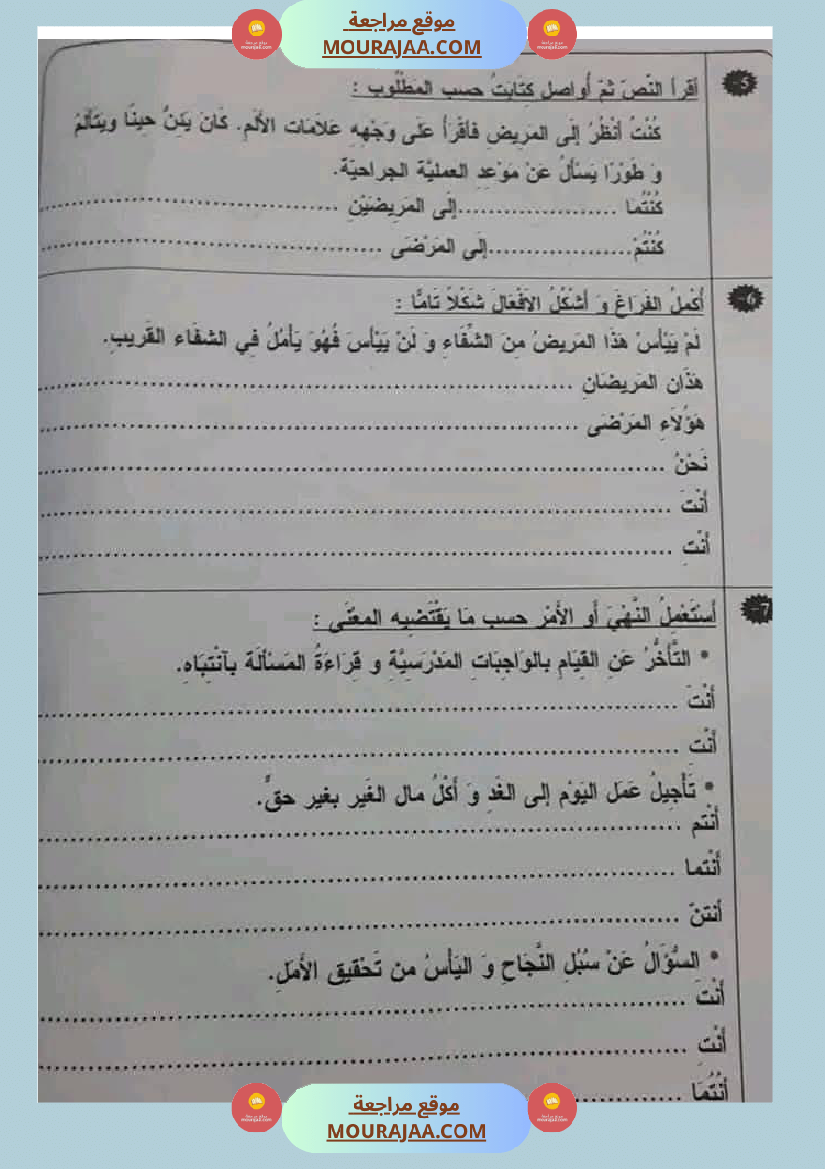 موقع مراجعة
MOURAJAA.COM
5-
أقرأ النّصّ ثمّ أُواصل كِتَابَتُ حسب المَطْلُوب :
كُنْتُ أنْظُرُ إلَى المَريضِ فَأقْرَأُ عَلَى وَجْهِهِ عَلاَمَات الأَلَم. كَانَ يَئِنُّ حينًا ويتَألمُ
وَ طَوْرًا يَسْألُ عَنْ مَوْعِدِ العمليَّة الجراحيّة.
كُنْتُما .....................إلَى المَرِيضَيْنِ ........................................
كُنْتُمْ.....................إلَى المَرْضَى ...............................................
6-
أُكْمِلُ الفَرَاغَ وَ أشَكْلُ الأفْعَالَ شَكْلاً تَامًّا :
لَمْ يَيْأسْ هَذَا المَريضُ مِنَ الشّفَاءِ وَ لَنْ يَيْأسَ فَهُوَ يَأمُلُ فِي الشفَاء القَريبِ.
هَذَان المَريضَانِ ......................................................................
هَؤُلاَءِ المَرْضَى ......................................................................
نَحْنُ ......................................................................
أنْتَ ......................................................................
أنْتِ ......................................................................
7-
أسْتَعْمِلُ النَّهْيَ أو الأمْرَ حسب مَا يَقْتَضيه المعنَى :
• التَّأخُّرُ عَنِ القيَامِ بالوَاجبَاتِ المَدْرَسيَّةِ و قِرَاءَةُ المَسْألَة بآنْتِبَاهِ.
أنْتَ ......................................................................
أنْتِ ......................................................................
• تَأْجِيلُ عَمَل اليَوْم إلى الغَدِ وَ أكْلُ مال الغَير بغير حقٍّ.
أنْتم ......................................................................
أنْتما ......................................................................
أنتنّ ......................................................................
• السُّؤَالُ عَنْ سُبُلِ النَّجَاحِ وَ اليَأْسُ من تَحْقيق الأَمَلِ.
أنْتَ ......................................................................
أنْتِ ......................................................................
أنْتُمَا ......................................................................
موقع مراجعة
MOURAJAA.COM